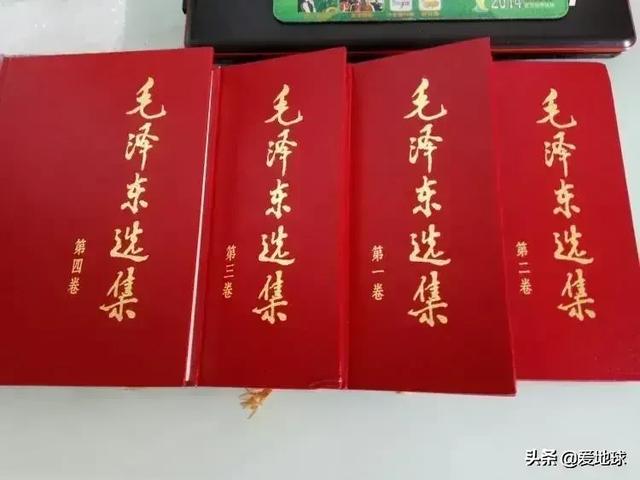 2014
毛泽东选集
第四卷
毛泽东选集
第三卷
毛泽东选集
第一卷
毛泽东选集
第二卷
头条 @爱地球